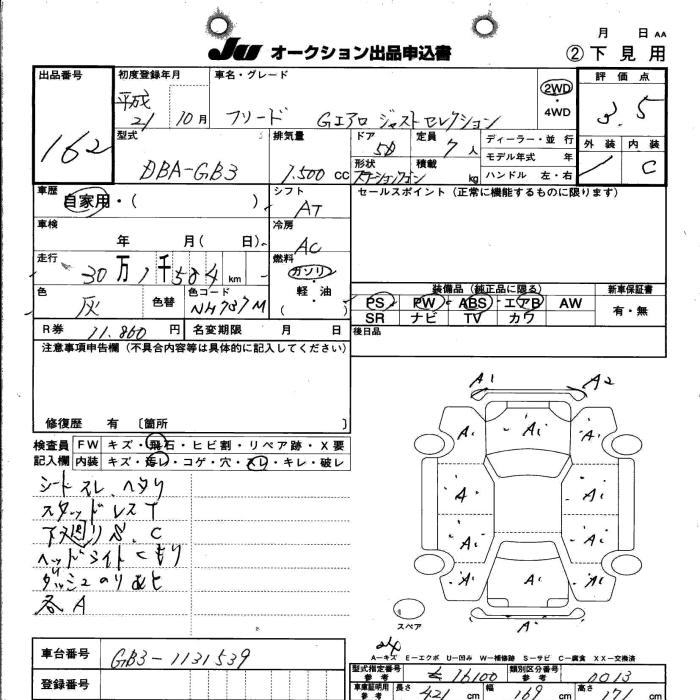 月 日 AA
JU オークション出品申込書 ②下見用
出品番号 初度登録年月 車名・グレード 2WD・4WD 評価点
162 平成21 10月 フリード Gエアロ ジャストセレクション 3.5
型式 排気量 ドア 定員 ディーラー・並行 外装 内装
DBA-GB3 1.500 cc 5D 7人 モデル年式 年 C
形状 積載 kg ハンドル 左・右
ステーションワゴン
車歴 自家用・( ) シフト AT セールスポイント(正常に機能するものに限ります)
車検 年 月( 日) 冷房 AC
走行 30万1千584km 燃料 ガソリ・軽・油 ( )
装備品(純正品に限る) 新車保証書
色 灰 色替 色コード NH737M PS PW ABS エアB AW 有・無
SR ナビ TV カワ
R券 11.860円 名変期限 月 日 後日品
注意事項申告欄(不具合内容等は具体的に記入してください)
修復歴 有 〔箇所 〕
検査員記入欄 FW キズ・飛石・ヒビ割・リペア跡・X要
内装 キズ・汚レ・コゲ・穴・スレ・キレ・破レ
シートスレ、ヘタリ
スタッドレスT
下廻りS、C
ヘッドライトくもり
ダッシュのりあと
各A
A1 A2
A A A
A A
A A
A A A
A
スペア
A-キズ E-エクボ U-凹み W-補修跡 S-サビ C-腐食 XX-交換済
車台番号 GB3-1131539
型式指定番号 参考 16100 類別区分番号 参考 0013
登録番号
車庫証明用 参考 長さ 421cm 幅 169cm 高さ 171cm